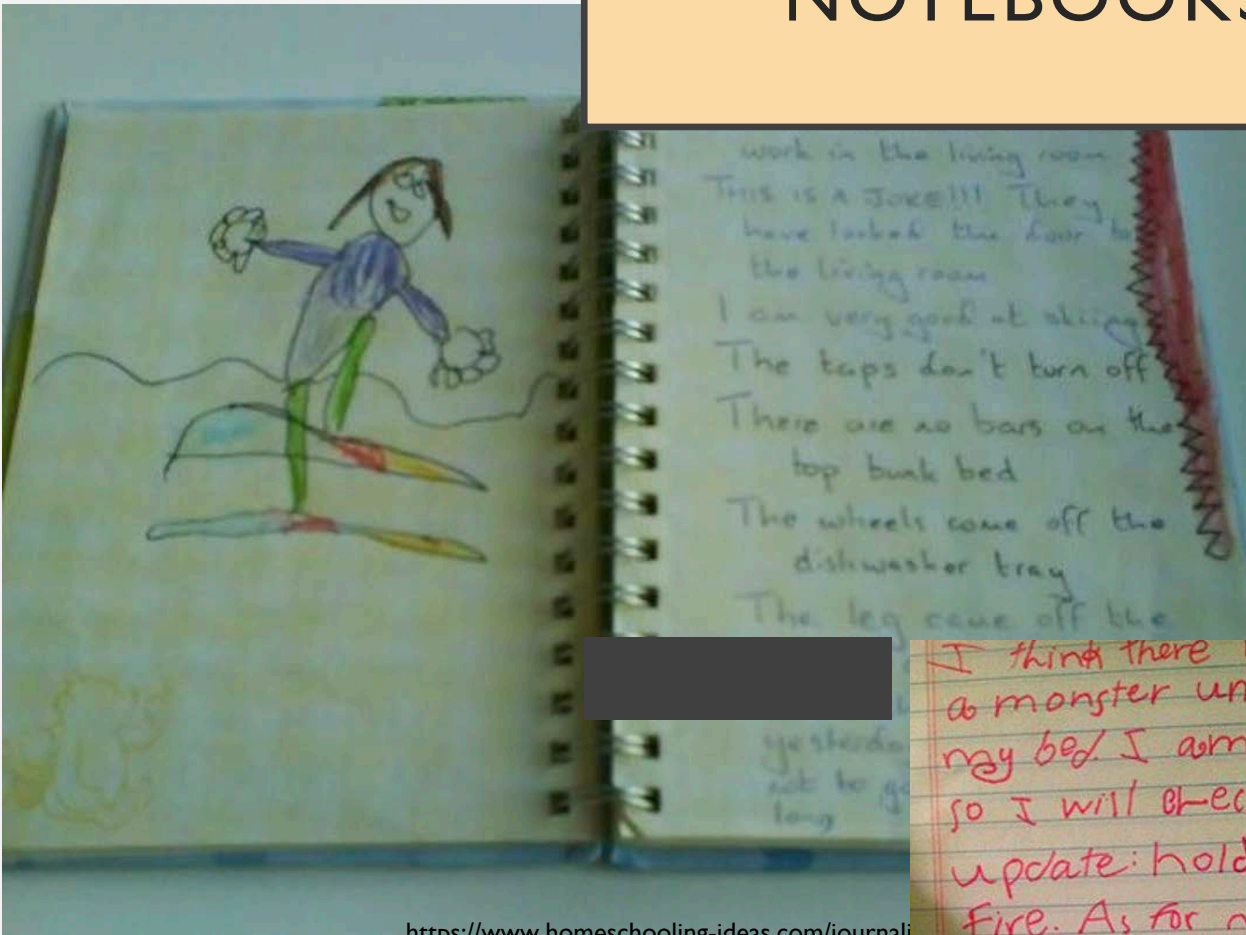 NOTEBOOKS
work in the living room
THIS IS A JOKE!!! They
have locked the door to
the living room
I am very good at skiing
The taps don't turn off
There are no bars on the
top bunk bed
The wheels come off the
dishwasher tray
The leg came off the
yesterda
not to go
long
I think there
a monster un
my bed. I am
so I will chec
update: hold
Fire. As for
https://www.homeschooling-ideas.com/journali